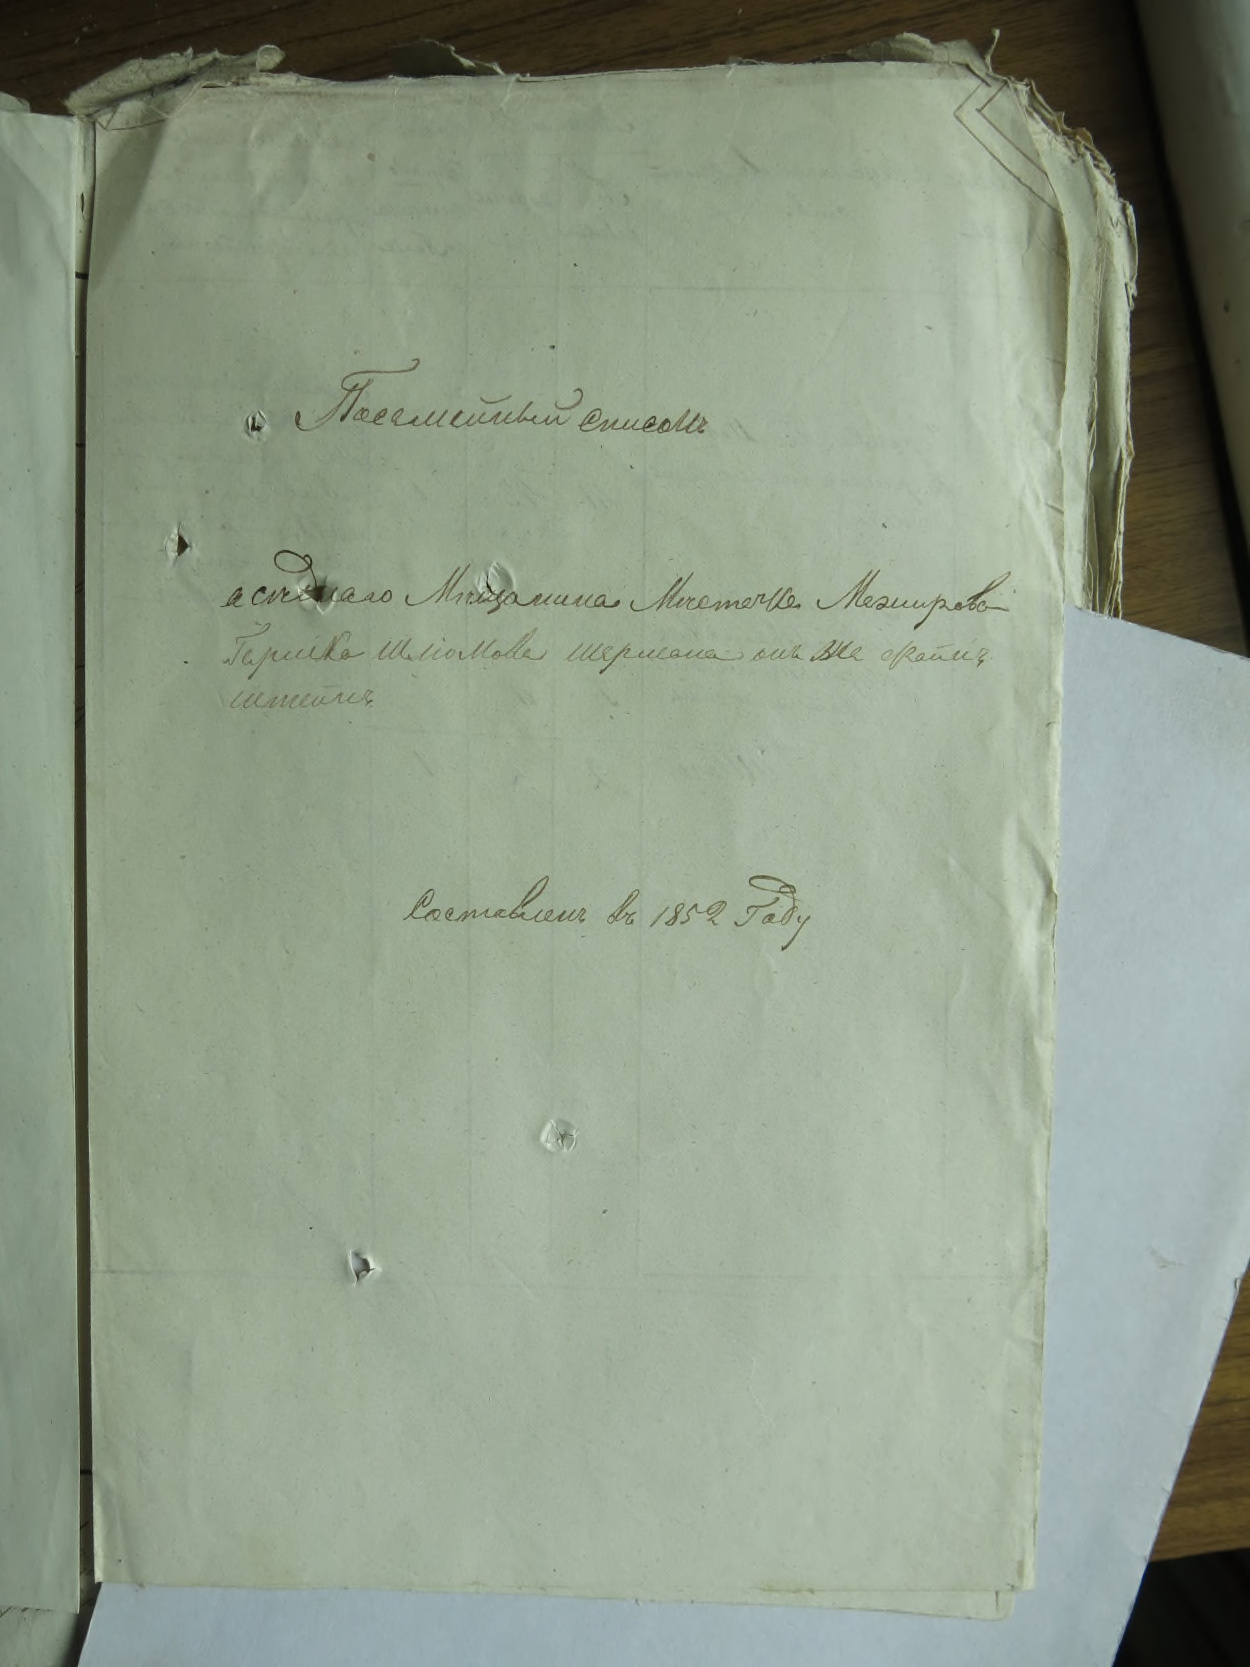 Посемейный списокъ
асѣдлаго Мѣщанина Мѣстечка Межирова
Гершка Шлiомова Шермана онъ же Файнъ
штейнъ
Составленъ въ 1852 Году